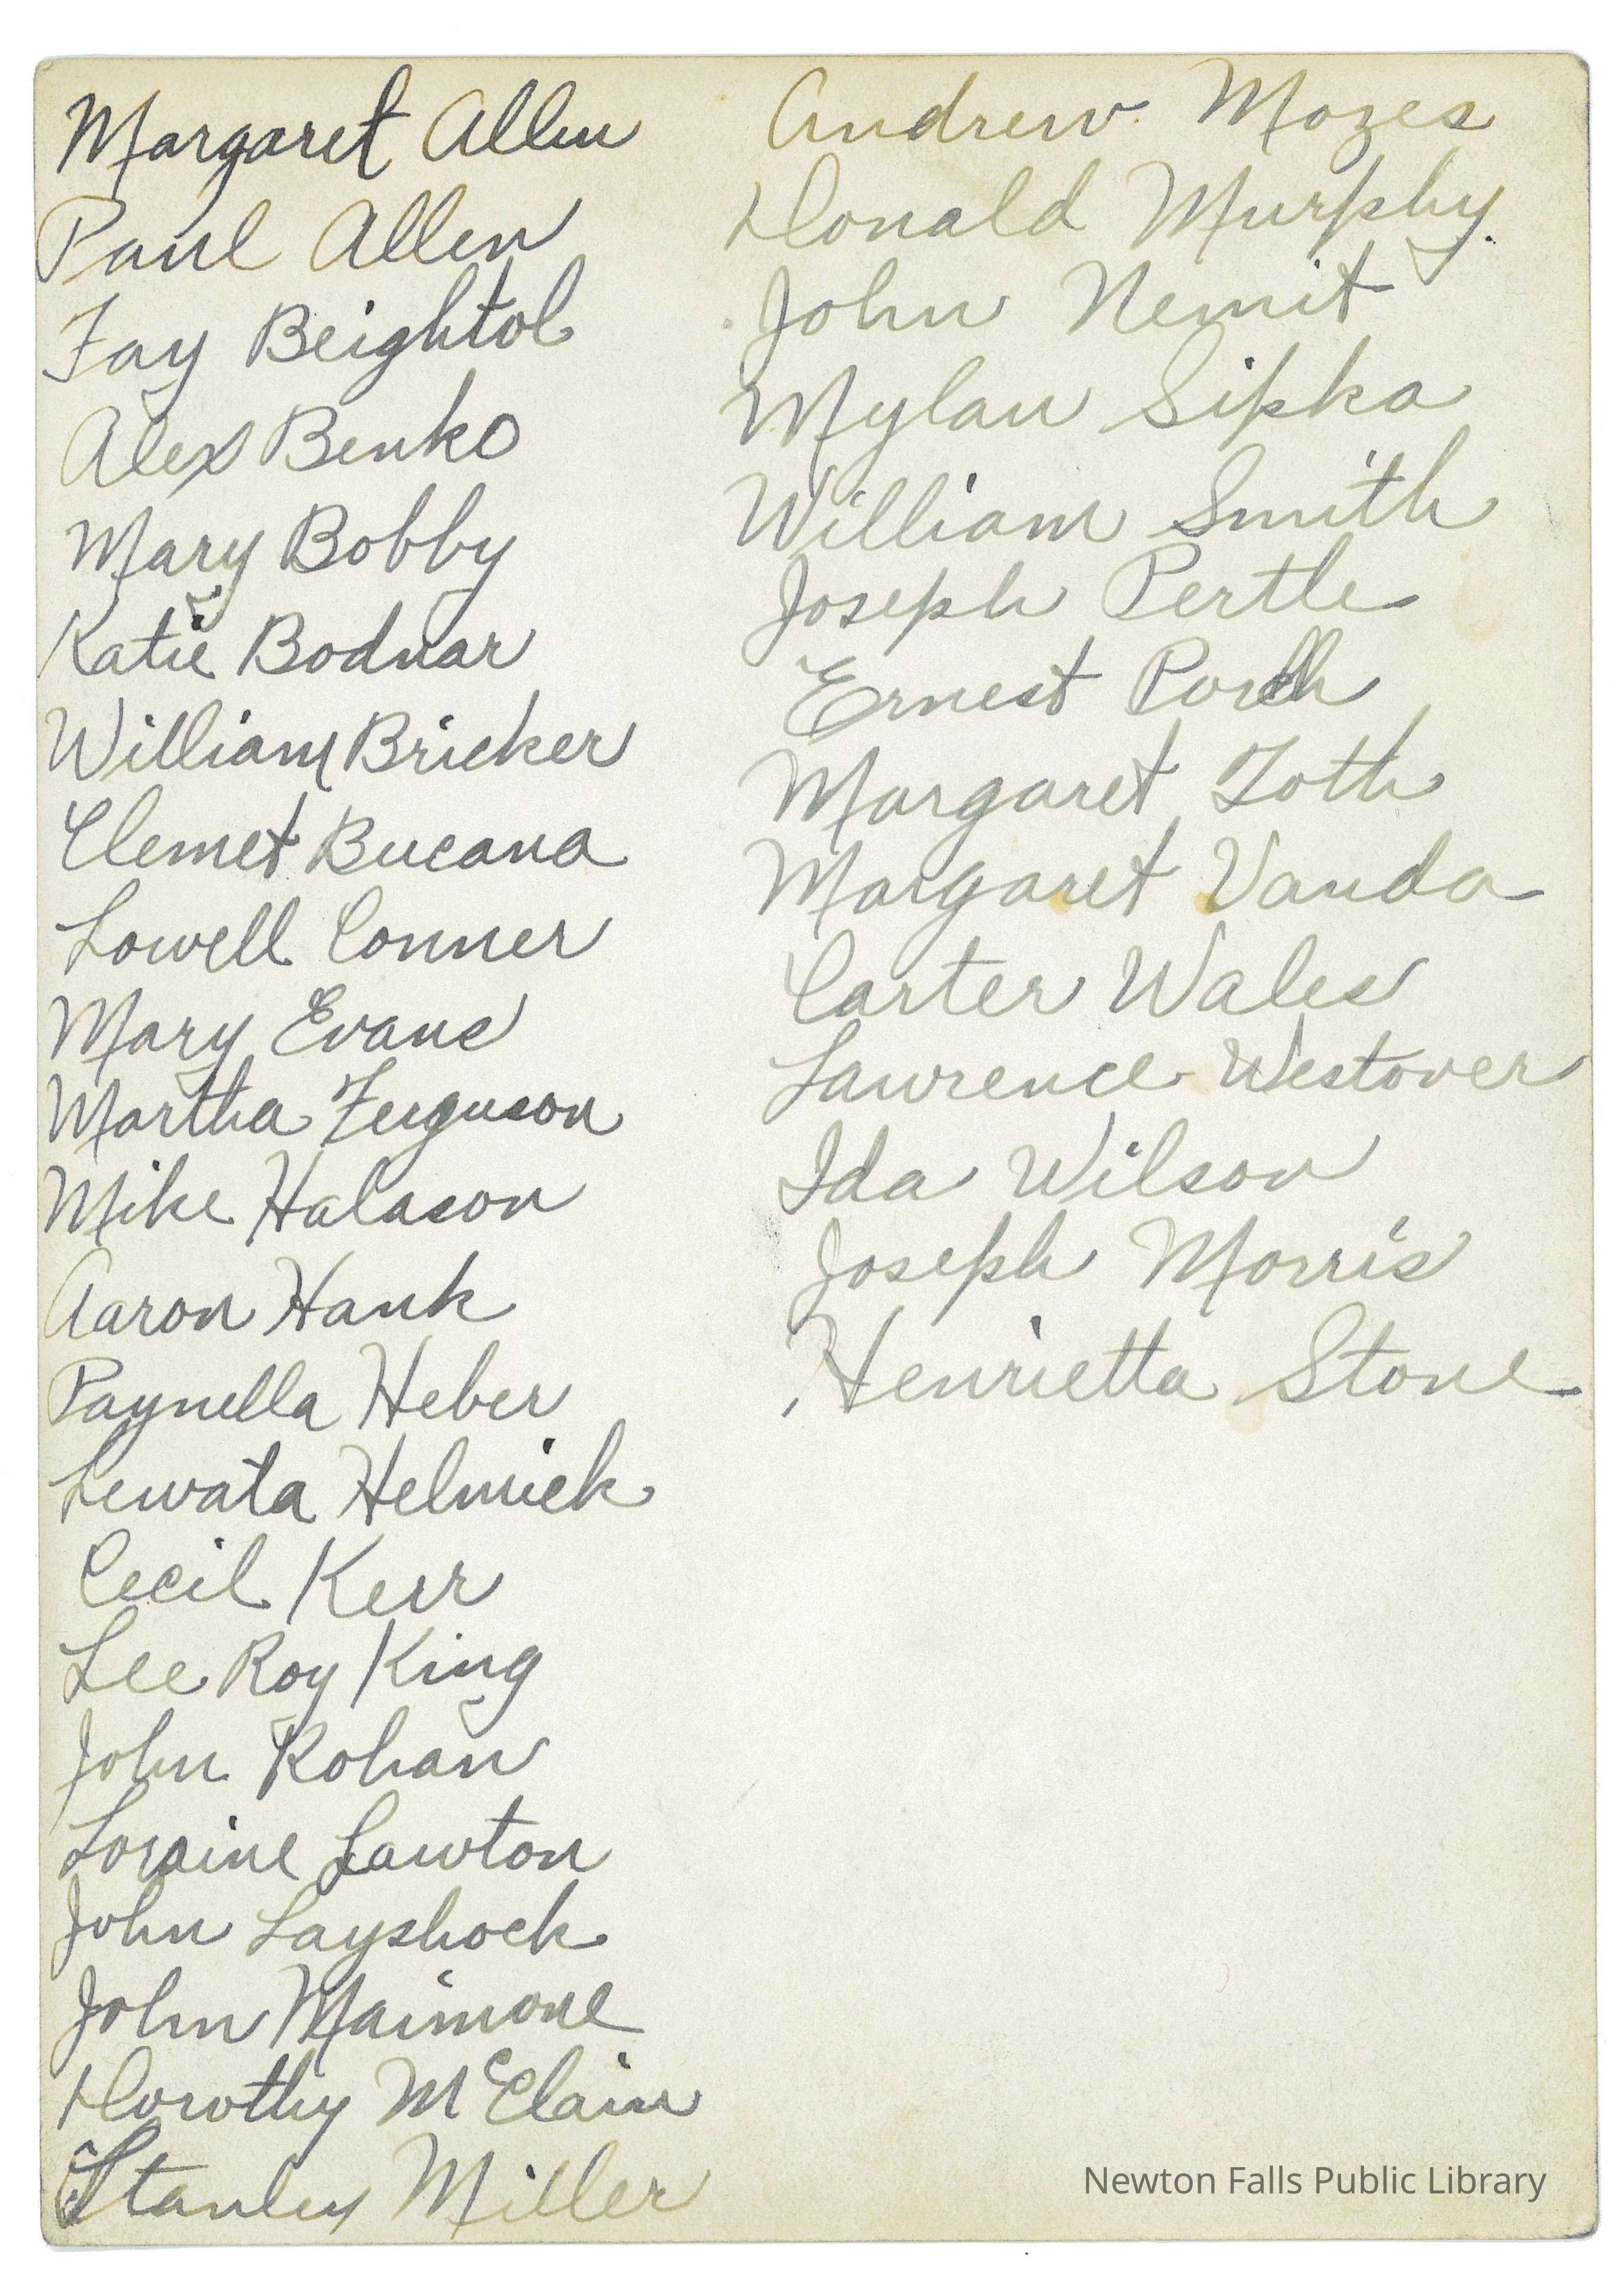 Margaret Allen
Paul Allen
Fay Beightol
Alex Benko
Mary Bobby
Katie Bodnar
William Bricker
Clemet Bucana
Lowell Conner
Mary Evans
Martha Ferguson
Mike Halason
Aaron Hank
Paynella Heber
Lewata Helmick
Cecil Kerr
Lee Roy King
John Kohan
Loraine Lawton
John Layshock
John Maimone
Dorothy McClain
Stanley Miller
Andrew Mozes
Donald Murphy.
John Nemit
Mylan Sipka
William Smith
Joseph Pertle
Ernest
Margaret Toth
Margaret Vanda
Carter Wales
Lawrence Westover
Ida Wilson
Joseph Morris
Henrietta Stone
Newton Falls Public Library